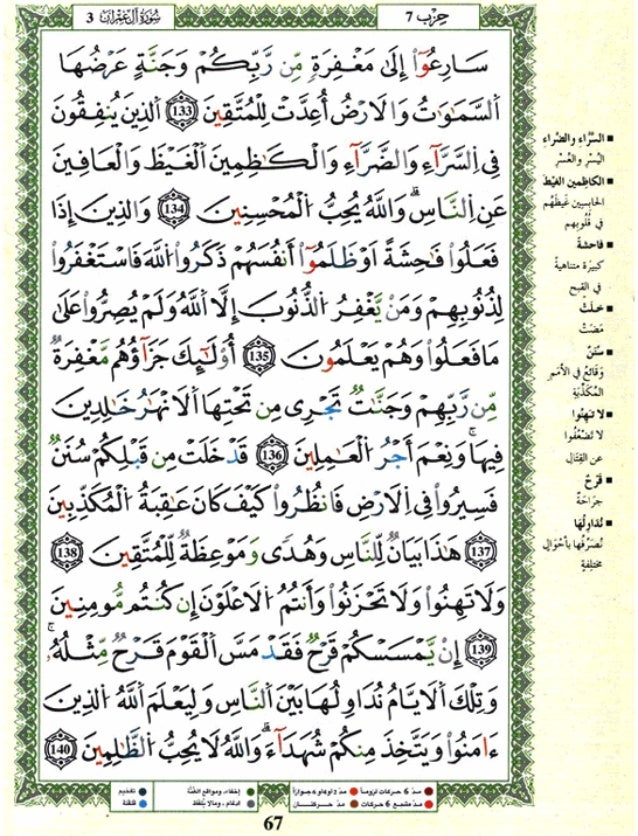 حِزْب 7
سُورَةُ آلِ عِمْرَان 3
سَارِعُوٓاْ إِلَىٰ مَغْفِرَةٖ مِّن رَّبِّكُمْ وَجَنَّةٍ عَرْضُهَا
اَ۬لسَّمَٰوَٰتُ وَالَارْضُ أُعِدَّتْ لِلْمُتَّقِينَ 133 اَ۬لذِينَ يُنفِقُونَ
فِے اِ۬لسَّرَّآءِ وَالضَّرَّآءِ وَالْكَٰظِمِينَ اَ۬لْغَيْظَ وَالْعَافِينَ
عَنِ اِ۬لنَّاسِۖ وَاللَّهُ يُحِبُّ اُ۬لْمُحْسِنِينَ 134 وَالذِينَ إِذَا
فَعَلُواْ فَٰحِشَةً اَوْ ظَلَمُوٓاْ أَنفُسَهُمْ ذَكَرُواْ اُ۬للَّهَ فَاسْتَغْفَرُواْ
لِذُنُوبِهِمْ وَمَنْ يَّغْفِرُ اُ۬لذُّنُوبَ إِلَّا اَ۬للَّهُ وَلَمْ يُصِرُّواْ عَلَىٰ
مَا فَعَلُواْ وَهُمْ يَعْلَمُونَ 135 أُوْلَٰٓئِكَ جَزَآؤُهُم مَّغْفِرَةٞ
مِّن رَّبِّهِمْ وَجَنَّٰتٞ تَجْرِے مِن تَحْتِهَا اَ۬لَانْهَٰرُ خَٰلِدِينَ
فِيهَاۖ وَنِعْمَ أَجْرُ اُ۬لْعَٰمِلِينَ 136 قَدْ خَلَتْ مِن قَبْلِكُمْ سُنَنٞ
فَسِيرُواْ فِے اِ۬لَارْضِ فَانظُرُواْ كَيْفَ كَانَ عَٰقِبَةُ اُ۬لْمُكَذِّبِينَ
137 هَٰذَا بَيَانٞ لِّلنَّاسِ وَهُدٗى وَمَوْعِظَةٞ لِّلْمُتَّقِينَ 138
وَلَا تَهِنُواْ وَلَا تَحْزَنُواْ وَأَنتُمُ اُ۬لَاعْلَوْنَ إِن كُنتُم مُّومِنِينَ
139 إِنْ يَّمْسَسْكُمْ قَرْحٞ فَقَدْ مَسَّ اَ۬لْقَوْمَ قَرْحٞ مِّثْلُهُۥۖ
وَتِلْكَ اَ۬لَايَّامُ نُدَاوِلُهَا بَيْنَ اَ۬لنَّاسِ وَلِيَعْلَمَ اَ۬للَّهُ اُ۬لذِينَ
ءَامَنُواْ وَيَتَّخِذَ مِنكُمْ شُهَدَآءَۖ وَاللَّهُ لَا يُحِبُّ اُ۬لظَّٰلِمِينَ 140
السَّرَّاءِ والضَّرَّاءِ
اليُسْرِ والعُسْرِ
الكاظِمين الغيظَ
الحابسين غَيظَهُم
في قُلُوبِهم
فاحشةً
كبيرةً متناهيةً
في القبح
خلتْ
مَضَتْ
سُنَنٌ
وَقائعُ في الأُمَمِ
المُكَذِّبَةِ
لا تهِنُوا
لا تَضْعُفُوا
عن القِتال
قَرْحٌ
جِرَاحَةٌ
نُداوِلُها
نُصَرِّفُها بأحْوالٍ
مختلفةٍ
مدّ 6 حركات لزوماً
مدّ 2 أو 4 أو 6 جوازاً
إخفاء، ومواقع الغُنَّة
تفخيم
مدّ مشبع 6 حركات
مدّ حركتان
ادغام، وما لا يُلفَظ
قلقلة
67